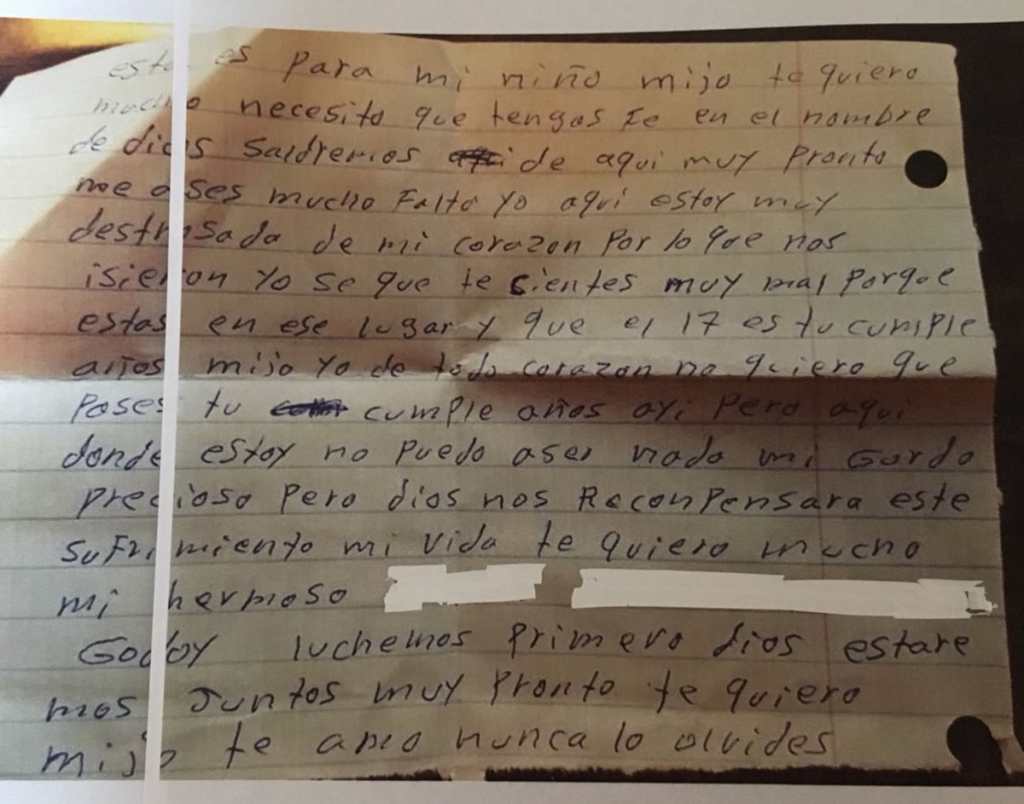 esto es para mi niño mijo te quiero
mucho necesito que tengas Fe en el nombre
de dios Saldremos de aqui muy pronto
me ases mucha Falta yo aqui estoy muy
destrosada de mi corazon por lo que nos
isieron yo se que te sientes muy mal porque
estas en ese lugar y que el 17 es tu cumple
años mijo yo de todo corazon no quiero que
pases tu cumple años ayi pero aqui
donde estoy no puedo aser nada mi Gordo
precioso pero dios nos Reconpensara este
sufrimiento mi vida te quiero mucho
mi hermoso
Godoy luchemos primero dios estare
mos Juntos muy pronto te quiero
mijo te amo nunca lo olvides